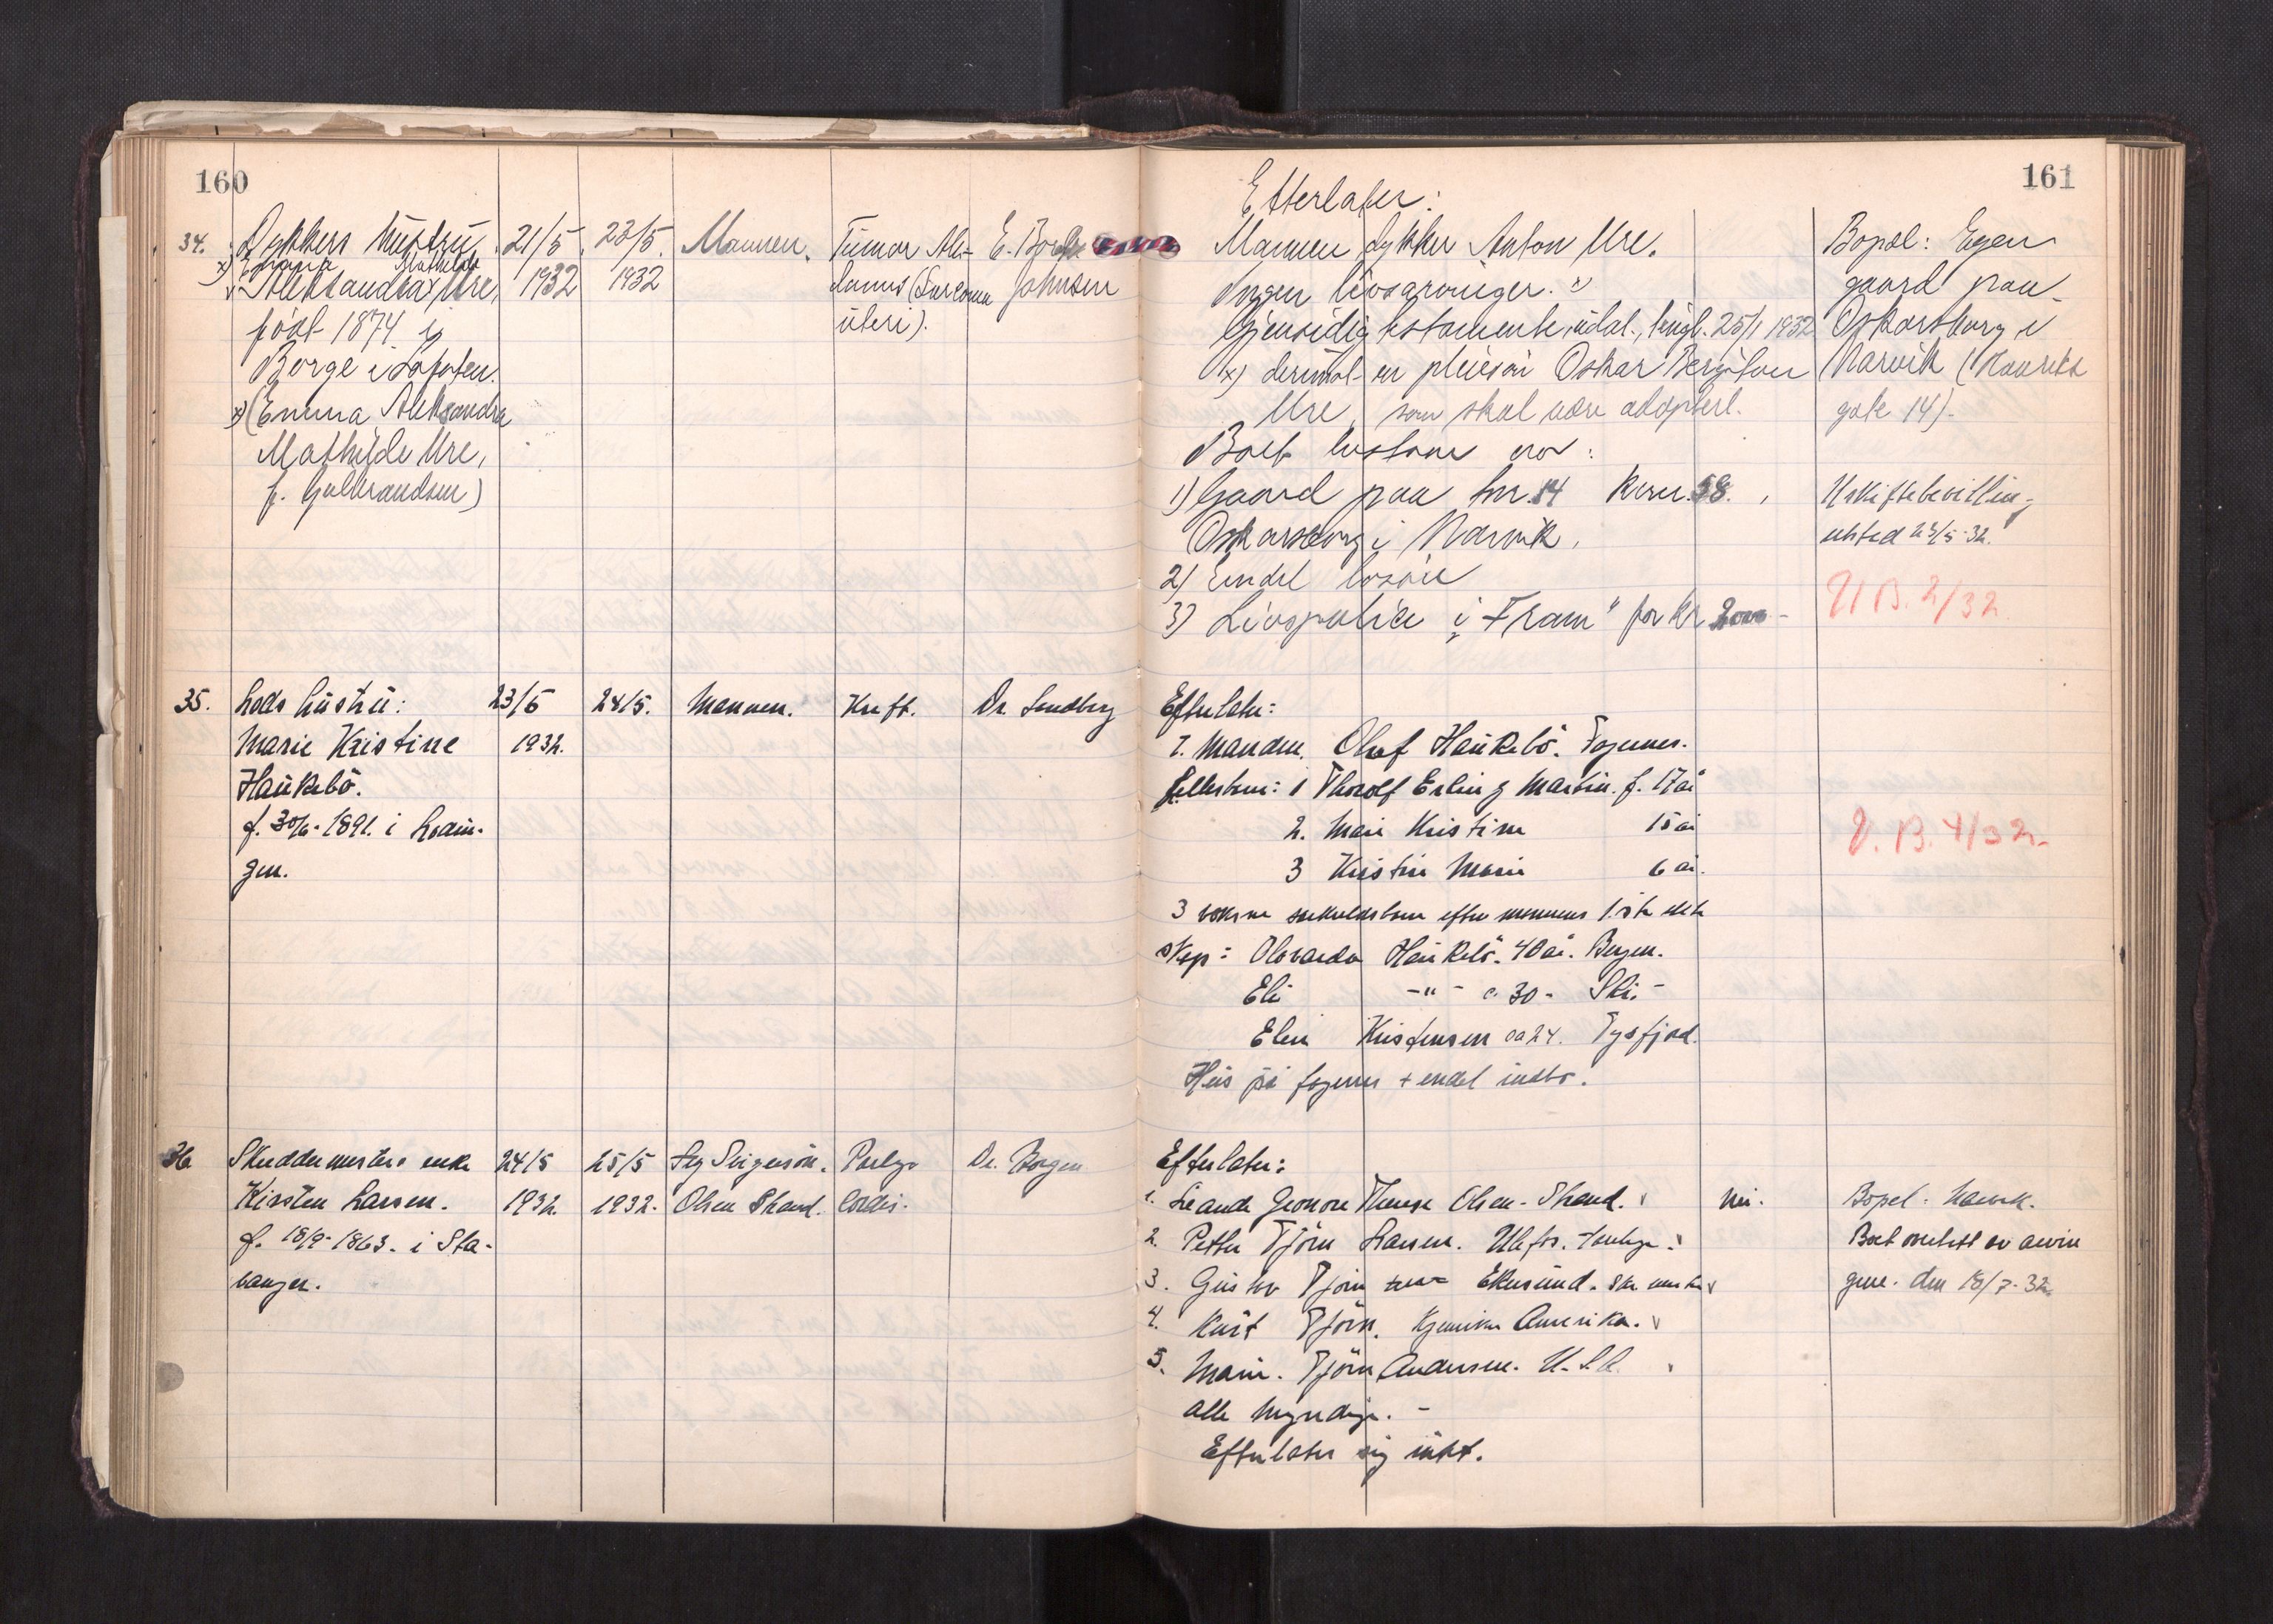 160
34. Dykkers hustru
x) Emma Mathilde
Aleksandra Ure,
født 1874 i
Borge i Lofoten.
x) (Emma Aleksandra
Mathilde Ure,
f. Gulbrandsen)
21/5
1932
23/5.
1932
Mannen.
Tumor
(Sarcoma
uteri).
E. Borch
Johnsen
35. Lods hustru:
Marie Kristine
Haukebö.
f. 30/6-1891. i Lødin-
gen.
23/5
1932.
24/5.
Mannen.
Kreft.
Dr. Sandberg
36 Skreddermesters enke
Kirsten Larsen.
f. 18/9-1863. i Sta-
vanger.
24/5
1932.
25/5
1932.
Svigersön.
Olsen Strand.
cordis.
Dr. Borgen
161
Efterlater:
Mannen dykker Anton Ure.
Ingen livsarvinger. x
Gjensidig testamente, tingl. 25/1 1932
x) derimot en pleiesön Oskar Bergitton
Ure, som skal være adoptert.
Boet består av:
1) Gaard paa tnr. 14 kvr. 58.
Oskarsborg i Narvik.
2) Endel løsøre
3) Livspolice i „Fram" for kr 2000 -
Bopæl: Egen
gaard paa
Oskarsborg i
Narvik (
gate 14).
Uskiftebevilling
utsted 23/5-32.
U B. 2/32
Efterlater:
1. Manden. Olaf Haukebö. Fagernes.
Fellesbarn: 1 Thorolf Erling Martin. f. 17 år
2. Marie Kristine 15 år
3 Kristine Marie 6 år.
3 voksne særkullsbarn efter mannens 1ste ekte
skap: Olvarda Haukebö. 40 år. Bergen.
Eli -"- ca 30 - Ski. -
Elen Kristensen ca 24. Tysfjord.
Hus på Fagernes + endel indbo.
U. B. 4/32.
Efterlater:
1. Leonore Therese Olsen-Strand.
2. Petter Tjörn Larsen.
3. Gustav Tjörn Ekersund.
4. Knut Tjörn. Kjemiker Amerika.
5. Marie. Tjörn Andersen. U.S.A.
alle myndige. -
Efterlater sig intet.
nei.
Bopel. Narvik.
Boet overtatt av arvin
gene. den 18/7-32.